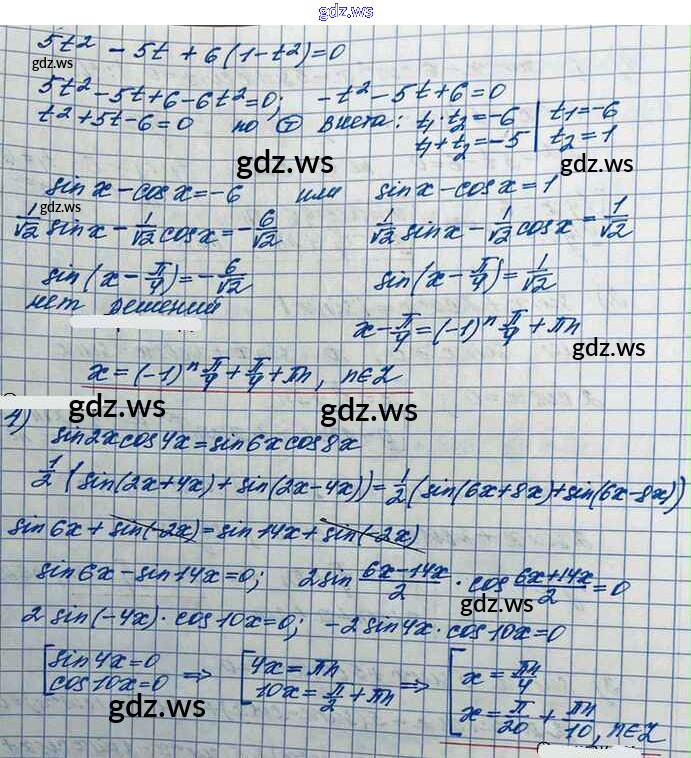 gdz.ws
5t² - 5t + 6(1-t²)=0
gdz.ws
5t² - 5t + 6 - 6t² = 0; -t² - 5t + 6 = 0
t² + 5t - 6 = 0 по Т Виета: t₁·t₂ = -6 | t₁ = -6
t₁ + t₂ = -5 | t₂ = 1
gdz.ws gdz.ws
sin x - cos x = -6 или sin x - cos x = 1
gdz.ws
1/√2 sin x - 1/√2 cos x = -6/√2 1/√2 sin x - 1/√2 cos x = 1/√2
sin(x - π/4) = -6/√2 sin(x - π/4) = 1/√2
нет решений
gdz.ws
x - π/4 = (-1)ⁿ π/4 + πn
gdz.ws
x = (-1)ⁿ π/4 + π/4 + πn, n∈Z
gdz.ws gdz.ws
4)
sin2x cos4x = sin6x cos8x
1/2 (sin(2x+4x) + sin(2x-4x)) = 1/2 (sin(6x+8x) + sin(6x-8x))
sin6x + sin(-2x) = sin14x + sin(-2x)
sin6x - sin14x = 0; 2sin (6x-14x)/2 · cos (6x+14x)/2 = 0
gdz.ws
2 sin(-4x) · cos10x = 0; -2 sin4x · cos10x = 0
[sin4x = 0 ⇒ [4x = πn ⇒ [x = πn/4
cos10x = 0 10x = π/2 + πn x = π/20 + πn/10, n∈Z
gdz.ws gdz.ws